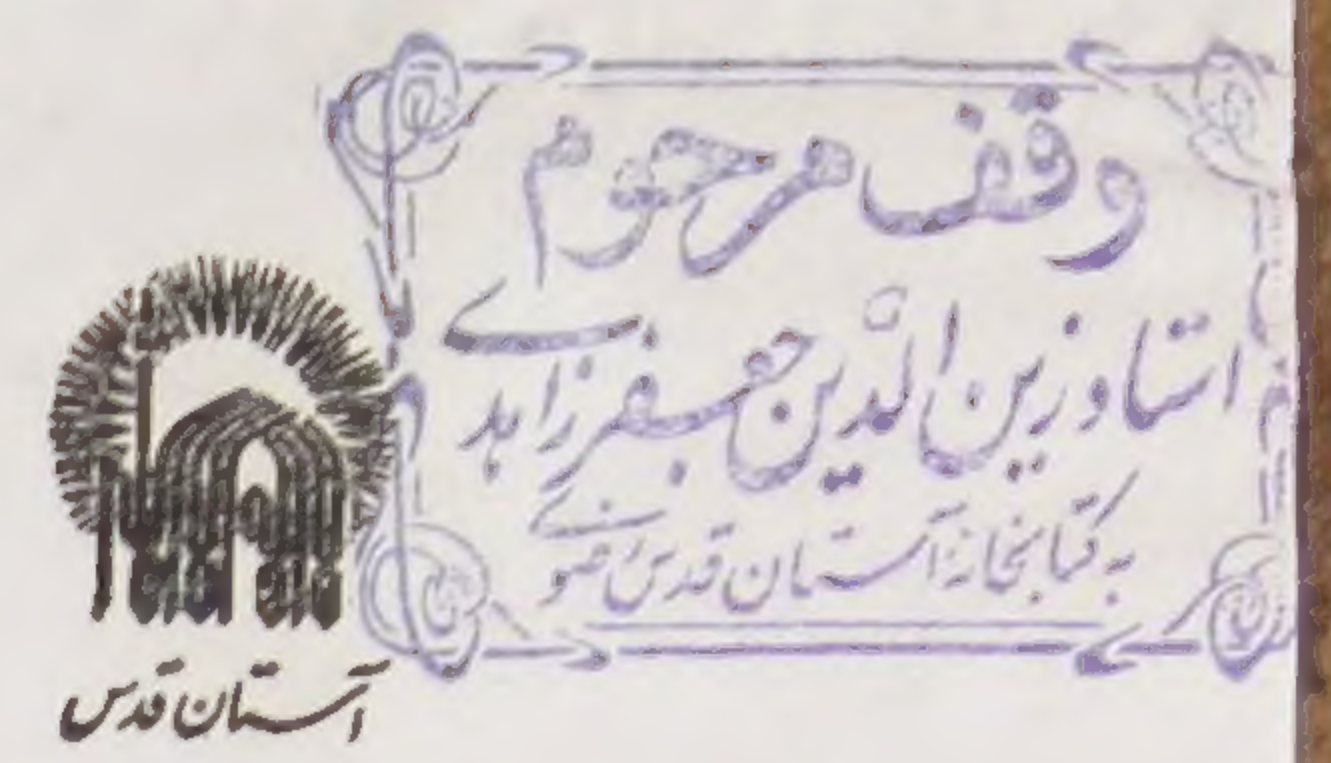 وقف مرحوم
استاد زین الدّین جعفر زاهدی
به کتابخانهٔ آستان قدس رضوی
آستان قدس